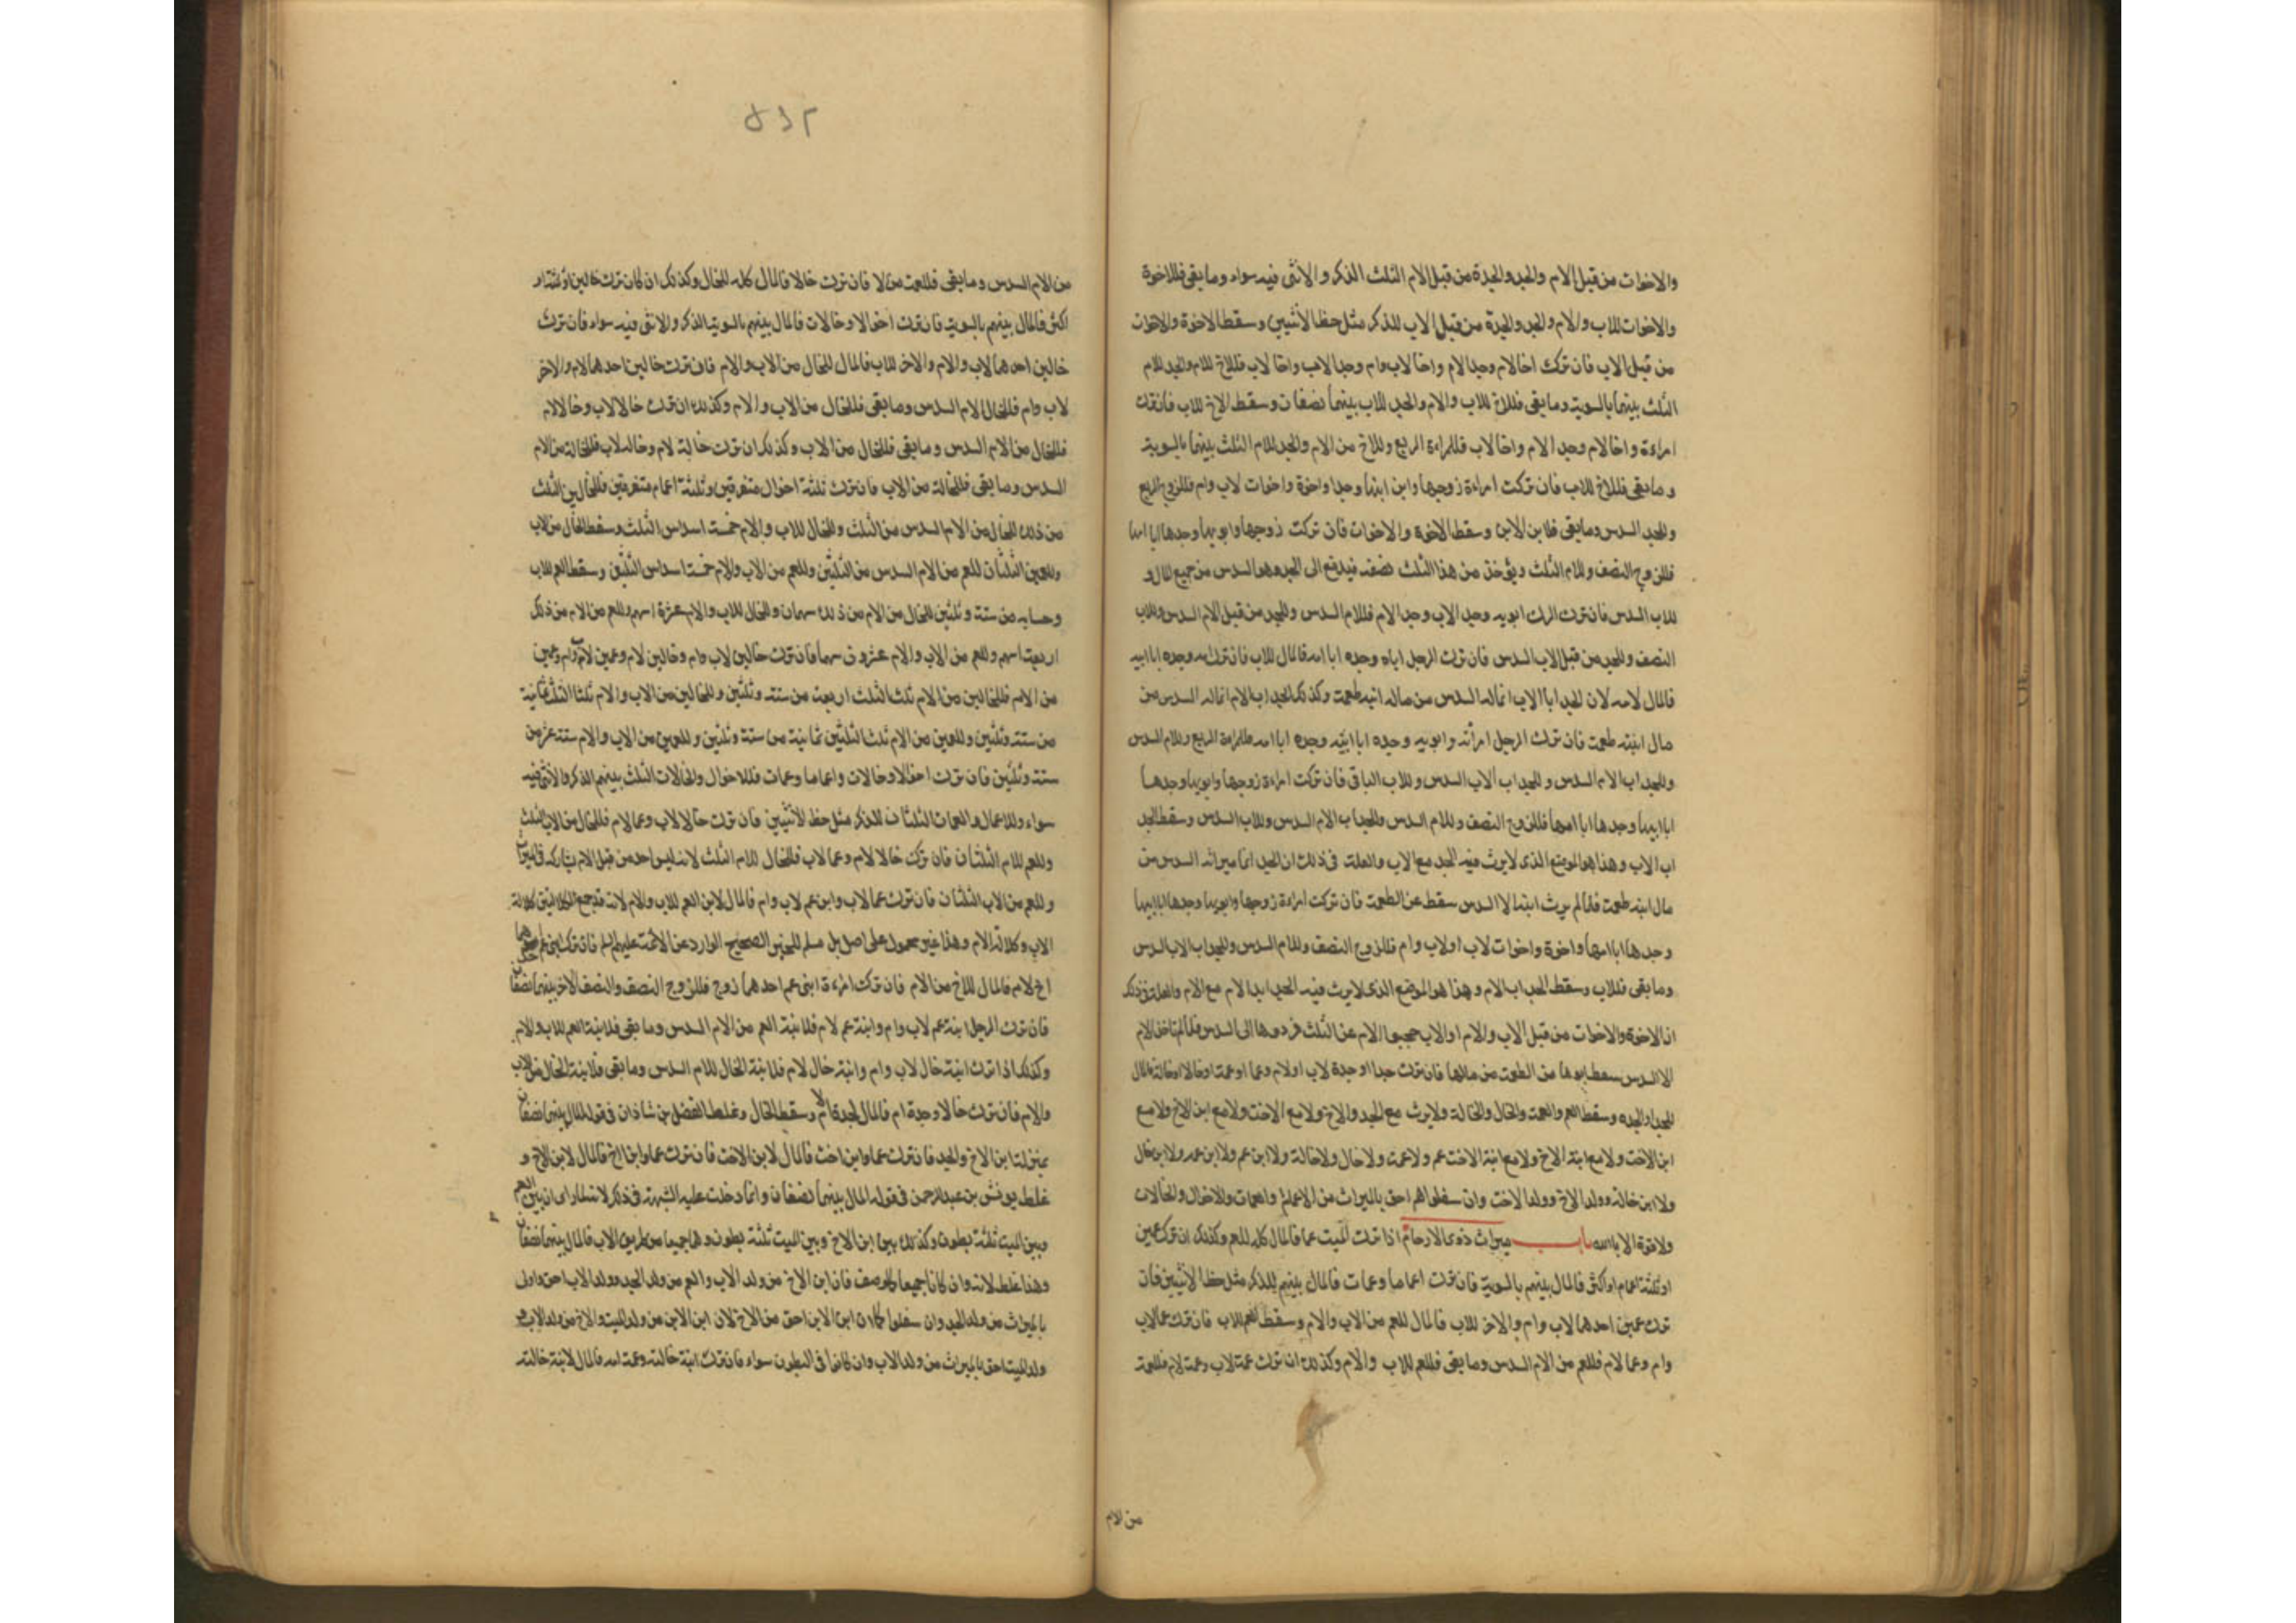 والاخوات من قبل الام والجد والجدة من قبل الام الثلث الذكر والانثى فيه سواء وما بقى فللاخوة
والاخوات للاب والام والجد والجدة من قبل الاب للذكر مثل حظ الأنثيين وسقط الاخوة والاخوات
من قبل الاب فان ترك اخا لام وجدا لام واخا لاب وام وجدا لاب واخا لاب فللاخ للام والجد للام
الثلث بينهما بالسوية وما بقى فللاخ للاب والام والجد للاب بينهما نصفان وسقط الاخ للاب فان ترك
امراءة واخا لام وجدا لام واخا لاب فللمراءة الربع وللاخ من الام والجد للام الثلث بينهما بالسوية
وما بقى فللاخ للاب فان تركت امراءة زوجها وابن ابنها وجدا واخوة واخوات لاب وام فللزوج الربع
وللجد السدس وما بقى فلابن الابن وسقط الاخوة والاخوات فان تركت زوجها وابويها وجدها ابا امها
فللزوج النصف وللام الثلث ويؤخذ من هذا الثلث نصفه فيدفع الى الجد وهو السدس من جميع المال و
للاب السدس فان ترك الرجل ابويه وجدا لاب وجدا لام فللام السدس وللجد من قبل الام السدس وللاب
النصف وللجد من قبل الاب السدس فان ترك الرجل اباه وجده ابا امه فالمال للاب فان ترك امه وجده ابا ابيه
فالمال لامه لان الجد ابا الاب انما له السدس من مال ابنه طعمة وكذلك الجد اب الام انما له السدس من
مال ابنته طعمة فان ترك الرجل امرأته وابويه وجده ابا ابيه وجده ابا امه فللمراءة الربع وللام السدس
وللجد اب الام السدس وللجد اب الاب السدس وللاب الباقى فان تركت امراءة زوجها وابويها وجدها
ابا ابيها وجدها ابا امها فللزوج النصف وللام السدس وللجد اب الام السدس وللاب السدس وسقط الجد
اب الاب وهذا هو الموضع الذى لا يرث فيه الجد مع الاب والعلة فى ذلك ان الجد انما ميراثه السدس من
مال ابنه طعمة فلما لم يرث ابنه الا السدس سقط عن الطعمة فان تركت امراءة زوجها وابويها وجدها ابا ابيها
وجدها ابا امها واخوة واخوات لاب او لاب وام فللزوج النصف وللام السدس وللجد اب الاب السدس
وما بقى فللاب وسقط الجد اب الام وهذا هو الموضع الذى لا يرث فيه الجد اب الام مع الام والعلة فى ذلك
ان الاخوة والاخوات من قبل الاب والام او الاب حجبوا الام عن الثلث فردوها الى السدس فلما لم تاخذ الام
الا السدس سقط ابوها من الطعمة من مالها فان ترك جدا او جدة لاب او لام وعما او عمة او خالا او خالة فالمال
للجد او الجده وسقط العم والعمة والخال والخالة ولا يرث مع الجد والاخ ولا مع الاخت ولا مع ابن الاخ ولا مع
ابن الاخت ولا مع ابنة الاخ ولا مع ابنة الاخت عم ولا عمة ولا خال ولا خالة ولا ابن عم ولا ابن عمه ولا ابن خال
ولا ابن خالة وولد الاخ وولد الاخت وان سفلوا هم احق بالميراث من الاعمام والعمات والاخوال والخالات
ولا قوة الا بالله باب ميراث ذوى الارحام اذا ترك الميت عما فالمال كله للعم وكذلك ان ترك عمين
او ثلثة اعمام او اكثر فالمال بينهم بالسوية فان ترك اعماما وعمات فالمال بينهم للذكر مثل حظ الأنثيين فان
ترك عمين احدهما لاب وام والاخر للاب فالمال للعم من الاب والام وسقط العم للاب فان ترك عما لاب
وام وعما لام فللعم من الام السدس وما بقى فللعم للاب والام وكذلك ان ترك عمة لاب وعمة لام فللعمة
من الام
٨٤٢
من الام السدس وما بقى فللعمة فان ترك خالا فالمال كله للخال وكذلك ان كان ترك خالين او ثلثة او
اكثر فالمال بينهم بالسوية فان ترك اخوالا وخالات فالمال بينهم بالسوية الذكر والانثى فيه سواء فان ترك
خالين احدهما لاب والام والاخر للاب فالمال للخال من الاب والام فان ترك خالين احدهما لام والاخر
لاب وام فللخال الام السدس وما بقى فللخال من الاب والام وكذلك ان ترك خالا لاب وخالا لام
فللخال من الام السدس وما بقى فللخال من الاب وكذلك ان ترك خالة لام وخالة لاب فللخالة من الام
السدس وما بقى فللخالة من الاب فان ترك ثلثة اخوال متفرقين وثلثة اعمام متفرقين فللخالين الثلث
من ذلك للخال من الام السدس من الثلث وللخال للاب والام خمسة اسداس الثلث وسقط الخال من الاب
وللعمين الثلثان للعم من الام السدس من الثلثين وللعم من الاب والام خمسة اسداس الثلثين وسقط العم للاب
وحسابه من ستة وثلثين للخال من الام من ذلك سهمان وللخال للاب والام عشرة اسهم وللعم من الام من ذلك
اربعة اسهم وللعم من الاب والام عشرون سهما فان ترك خالين لاب وام وخالين لام وعمين لاب وام وعمين
من الام فللخالين من الام ثلث الثلث اربعة من ستة وثلثين وللخالين من الاب والام ثلثا الثلث ثمانية
من ستة وثلثين وللعمين من الام ثلث الثلثين ثمانية من ستة وثلثين وللعمين من الاب والام ستة عشر من
ستة وثلثين فان ترك اخوالا وخالات واعماما وعمات فللاخوال والخالات الثلث بينهم الذكر والأنثى فيه
سواء وللاعمام والعمات الثلثان للذكر مثل حظ الأنثيين فان ترك خالا لاب وعما لام فللخال من الاب الثلث
وللعم للام الثلثان فان ترك خالا لام وعما لاب فللخال للام الثلث لانه ليس احد من قبل الام يشاركه فى الميراث
وللعم من الاب الثلثان فان ترك عما لاب وابن عم لاب وام فالمال لابن العم للاب والام لانه قد جمع الكلالتين كلالة
الاب وكلالة الام وهذا غير محمول على اصل بل مسلم للخبر الصحيح الوارد عن الائمة عليهم السلم فان ترك ابنى عم احدهما
اخ لام فالمال للاخ من الام فان تركت امراءة ابنى عم احدهما زوج فللزوج النصف والنصف الاخر بينهما نصفان
فان ترك الرجل ابنة عم لاب وام وابنة عم لام فلابنة العم من الام السدس وما بقى فلابنة العم للاب والام
وكذلك اذا ترك ابنة خال لاب وام وابنة خال لام فلابنة الخال للام السدس وما بقى فلابنة الخال من الاب
والام فان ترك خالا وجدة ام فالمال لجدة الام وسقط الخال وغلط الفضل بن شاذان فى قوله المال بينهما نصفان
بمنزلة ابن الاخ والجد فان ترك عما وابن اخت فالمال لابن الاخت فان ترك عما وابن اخ فالمال لابن الاخ و
غلط يونس بن عبد الرحمن فى قوله المال بينهما نصفان وانما دخلت عليه الشبهة فى ذلك لانه لما راى ان بين العم
وبين الميت ثلثة بطون وكذلك بين ابن الاخ وبين الميت ثلثة بطون وهما جميعا من طريق الاب فالمال بينهما نصفان
وهذا غلط لانه وان كانا جميعا كما وصف فان ابن الاخ من ولد الاب والعم من ولد الجد وولد الاب احق واولى
بالميراث من ولد الجد وان سفلوا كما ان ابن الابن احق من الاخ لان ابن الابن من ولد الميت والاخ من ولد الاب و
ولد الميت احق بالميراث من ولد الاب وان كانوا فى البطون سواء فان ترك ابنة خالته وعمة امه فالمال لابنة خالته